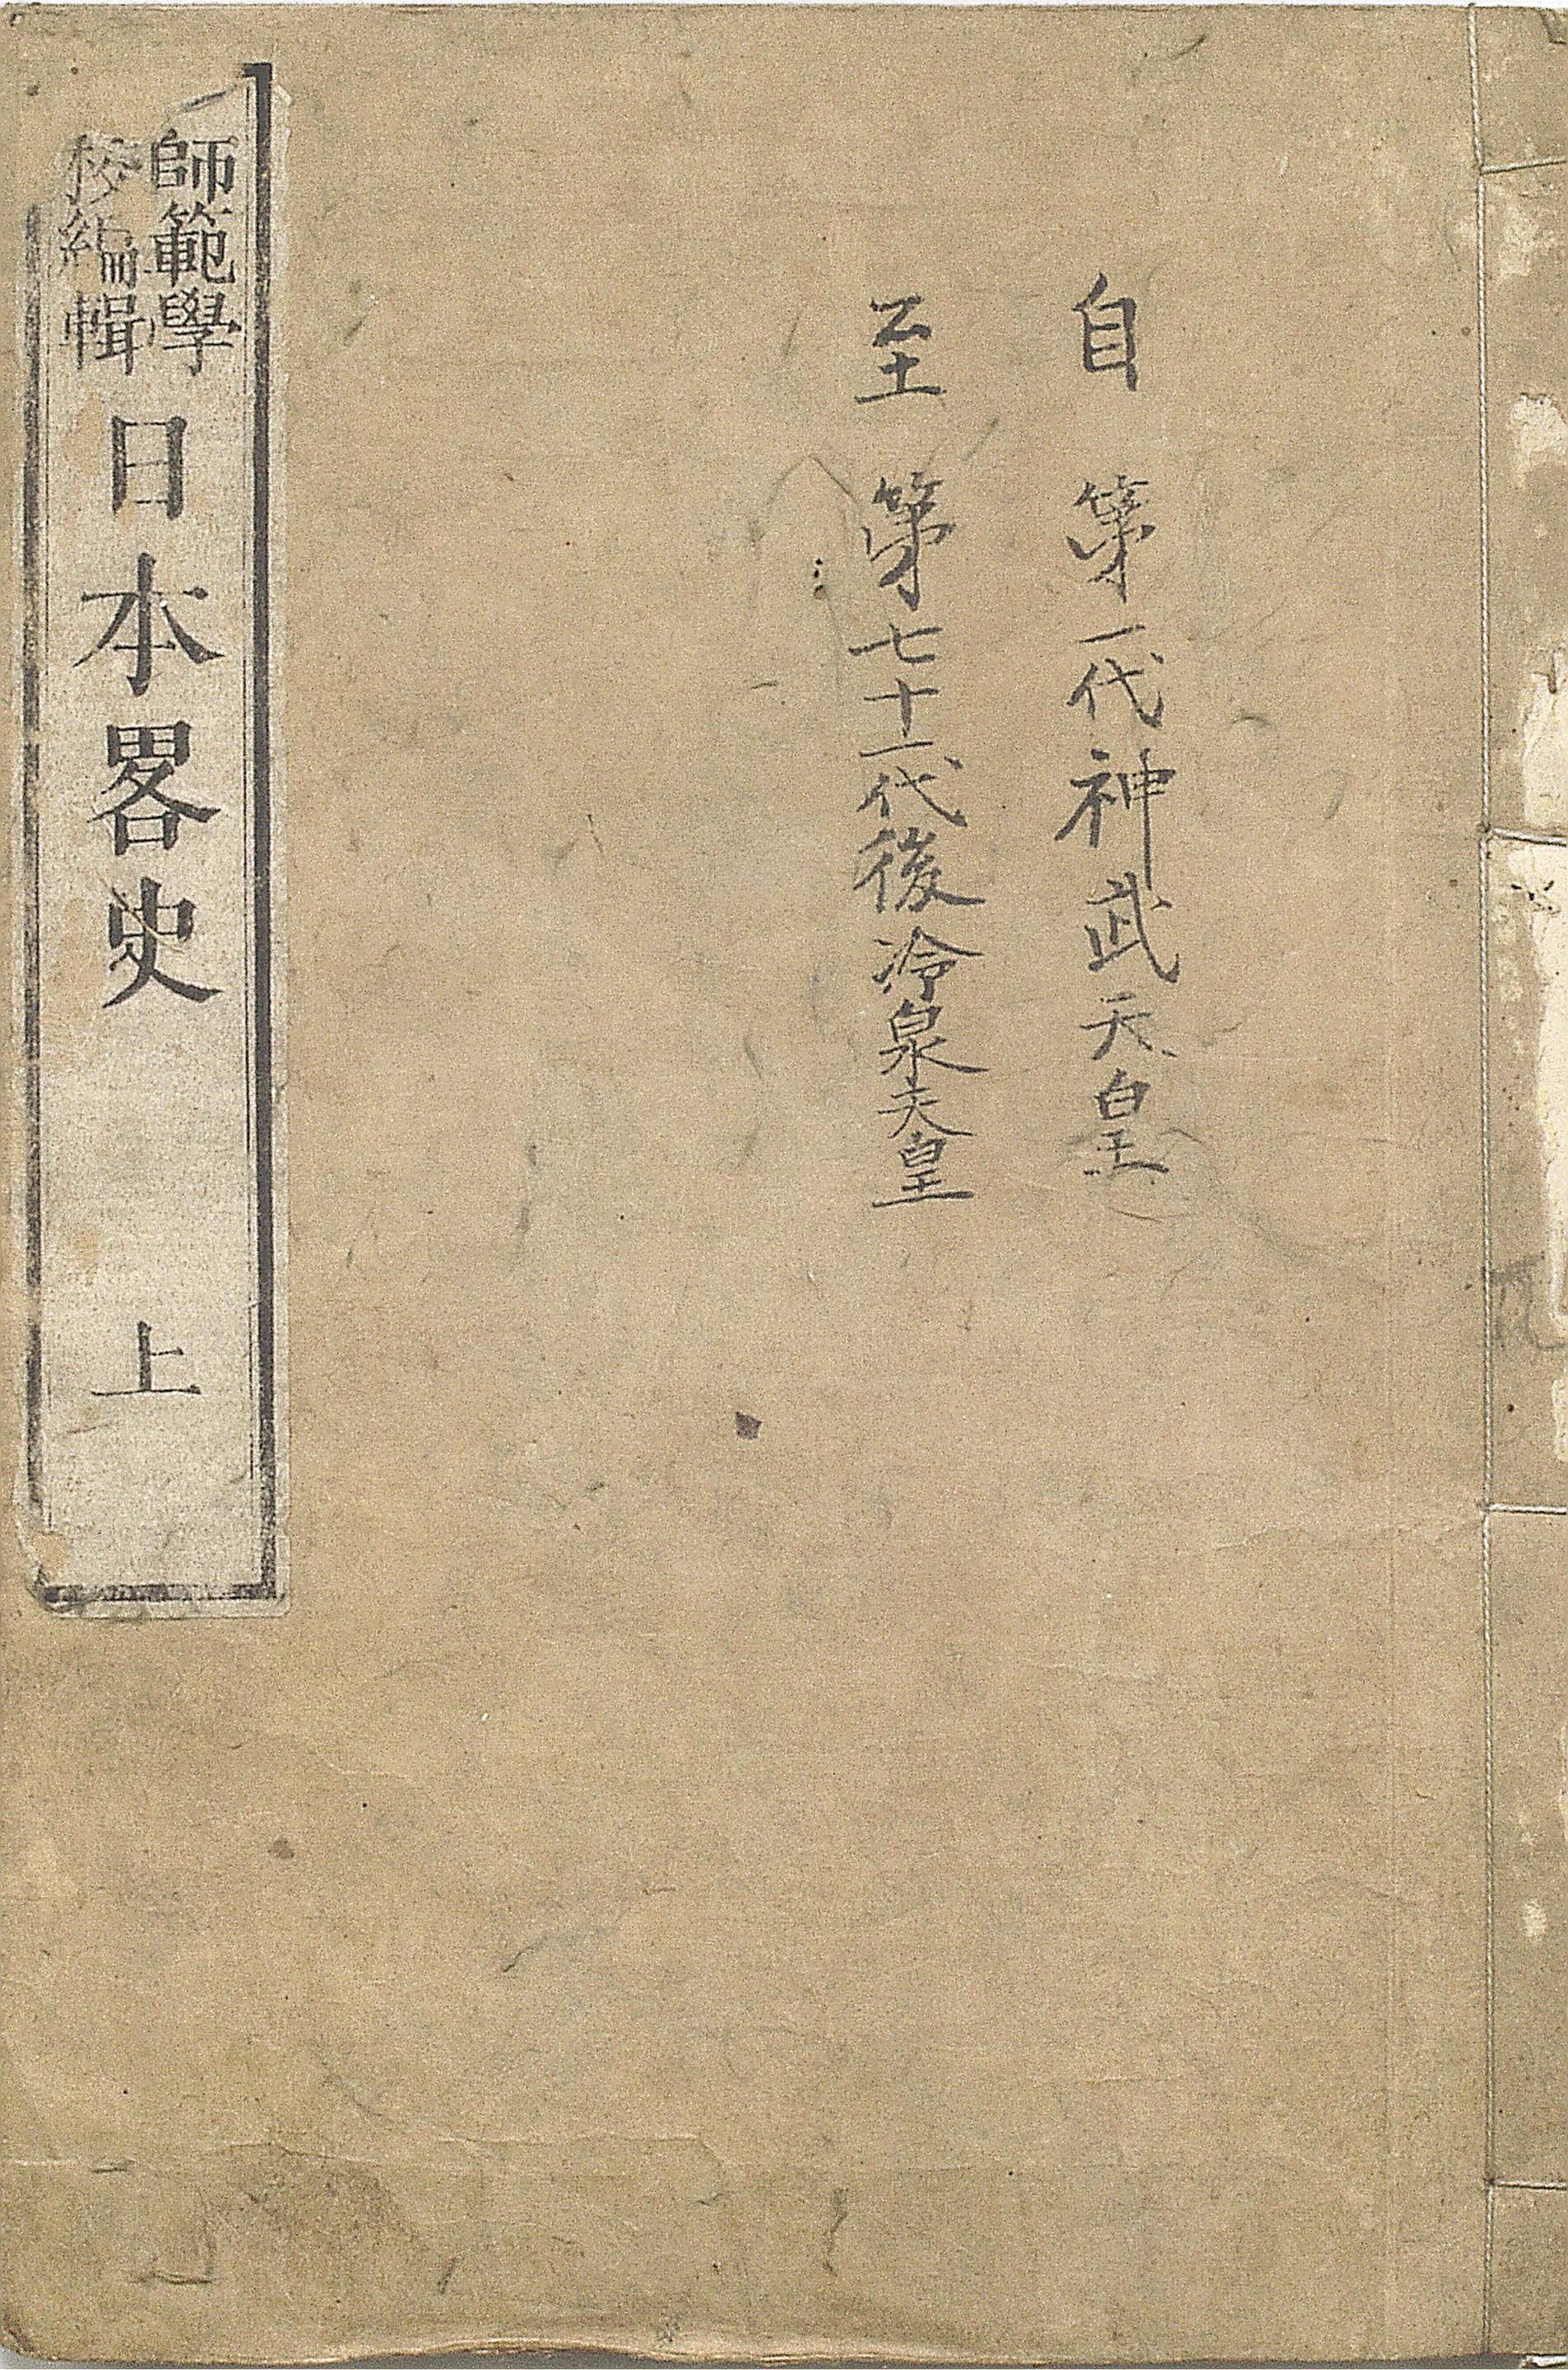 自 第一代神武天皇
至 第七十一代後冷泉天皇
師範學
校編輯
日本畧史 上